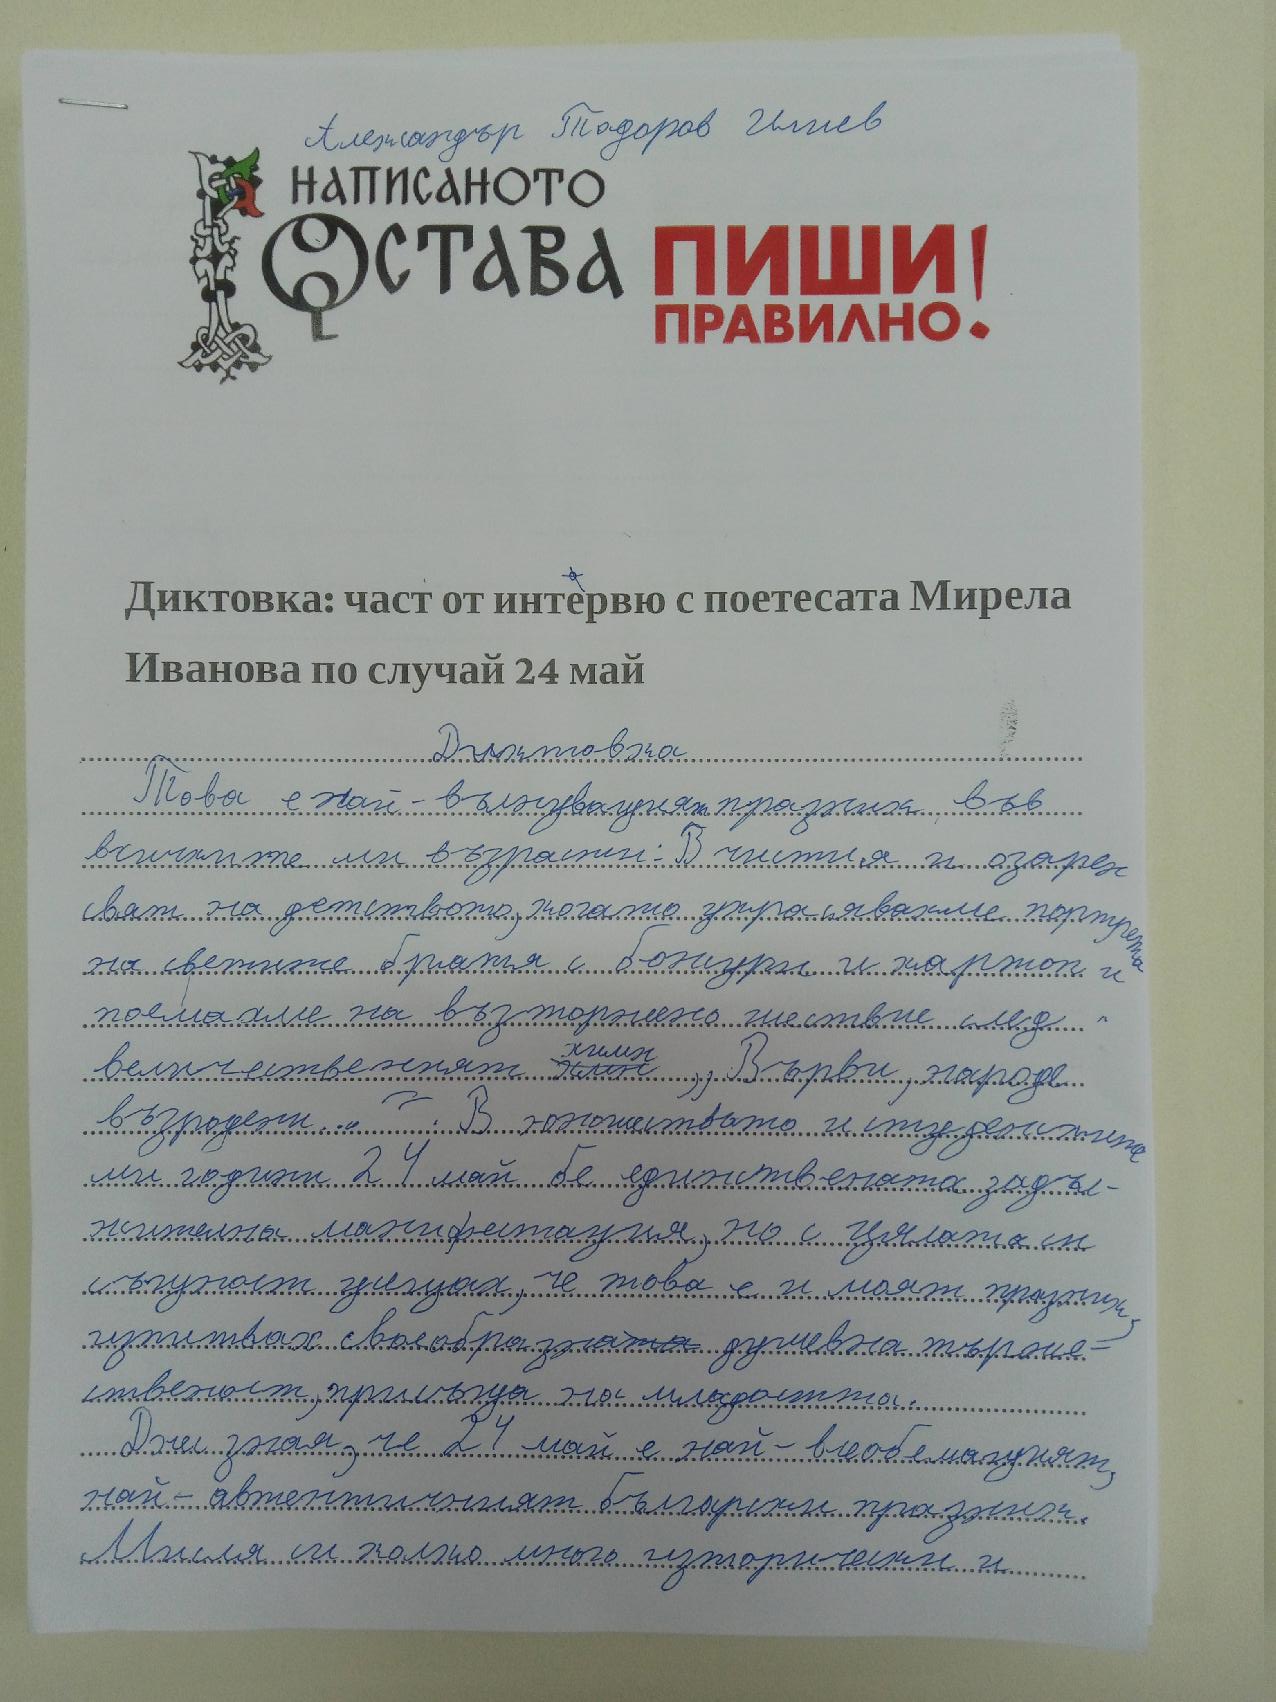 Александър Тодоров Илиев
НАПИСАНОТО
ОСТАВА
ПИШИ
ПРАВИЛНО!
Диктовка: част от интервю с поетесата Мирела
Иванова по случай 24 май
Диктовка
Това е най-вълнуващия празник във
всичките ми възрасти: В чистия и озарен
свят на детството, когато украсявахме портрета
на светите братя с божури и картон и
поемахме на възторжено шествие след
величественият химн „Върви, народе
възродени...". В юношеството и студентските
ми години 24 май бе единствената задъл-
жителна манифестация, но с цялата си
същност усещах, че това е и моят празник,
изпитвах своеобразна душевна търже-
ственост, присъща на младостта.
Днес зная, че 24 май е най-всеобемащият,
най-автентичният български празник.
Мисля си колко много изторически и